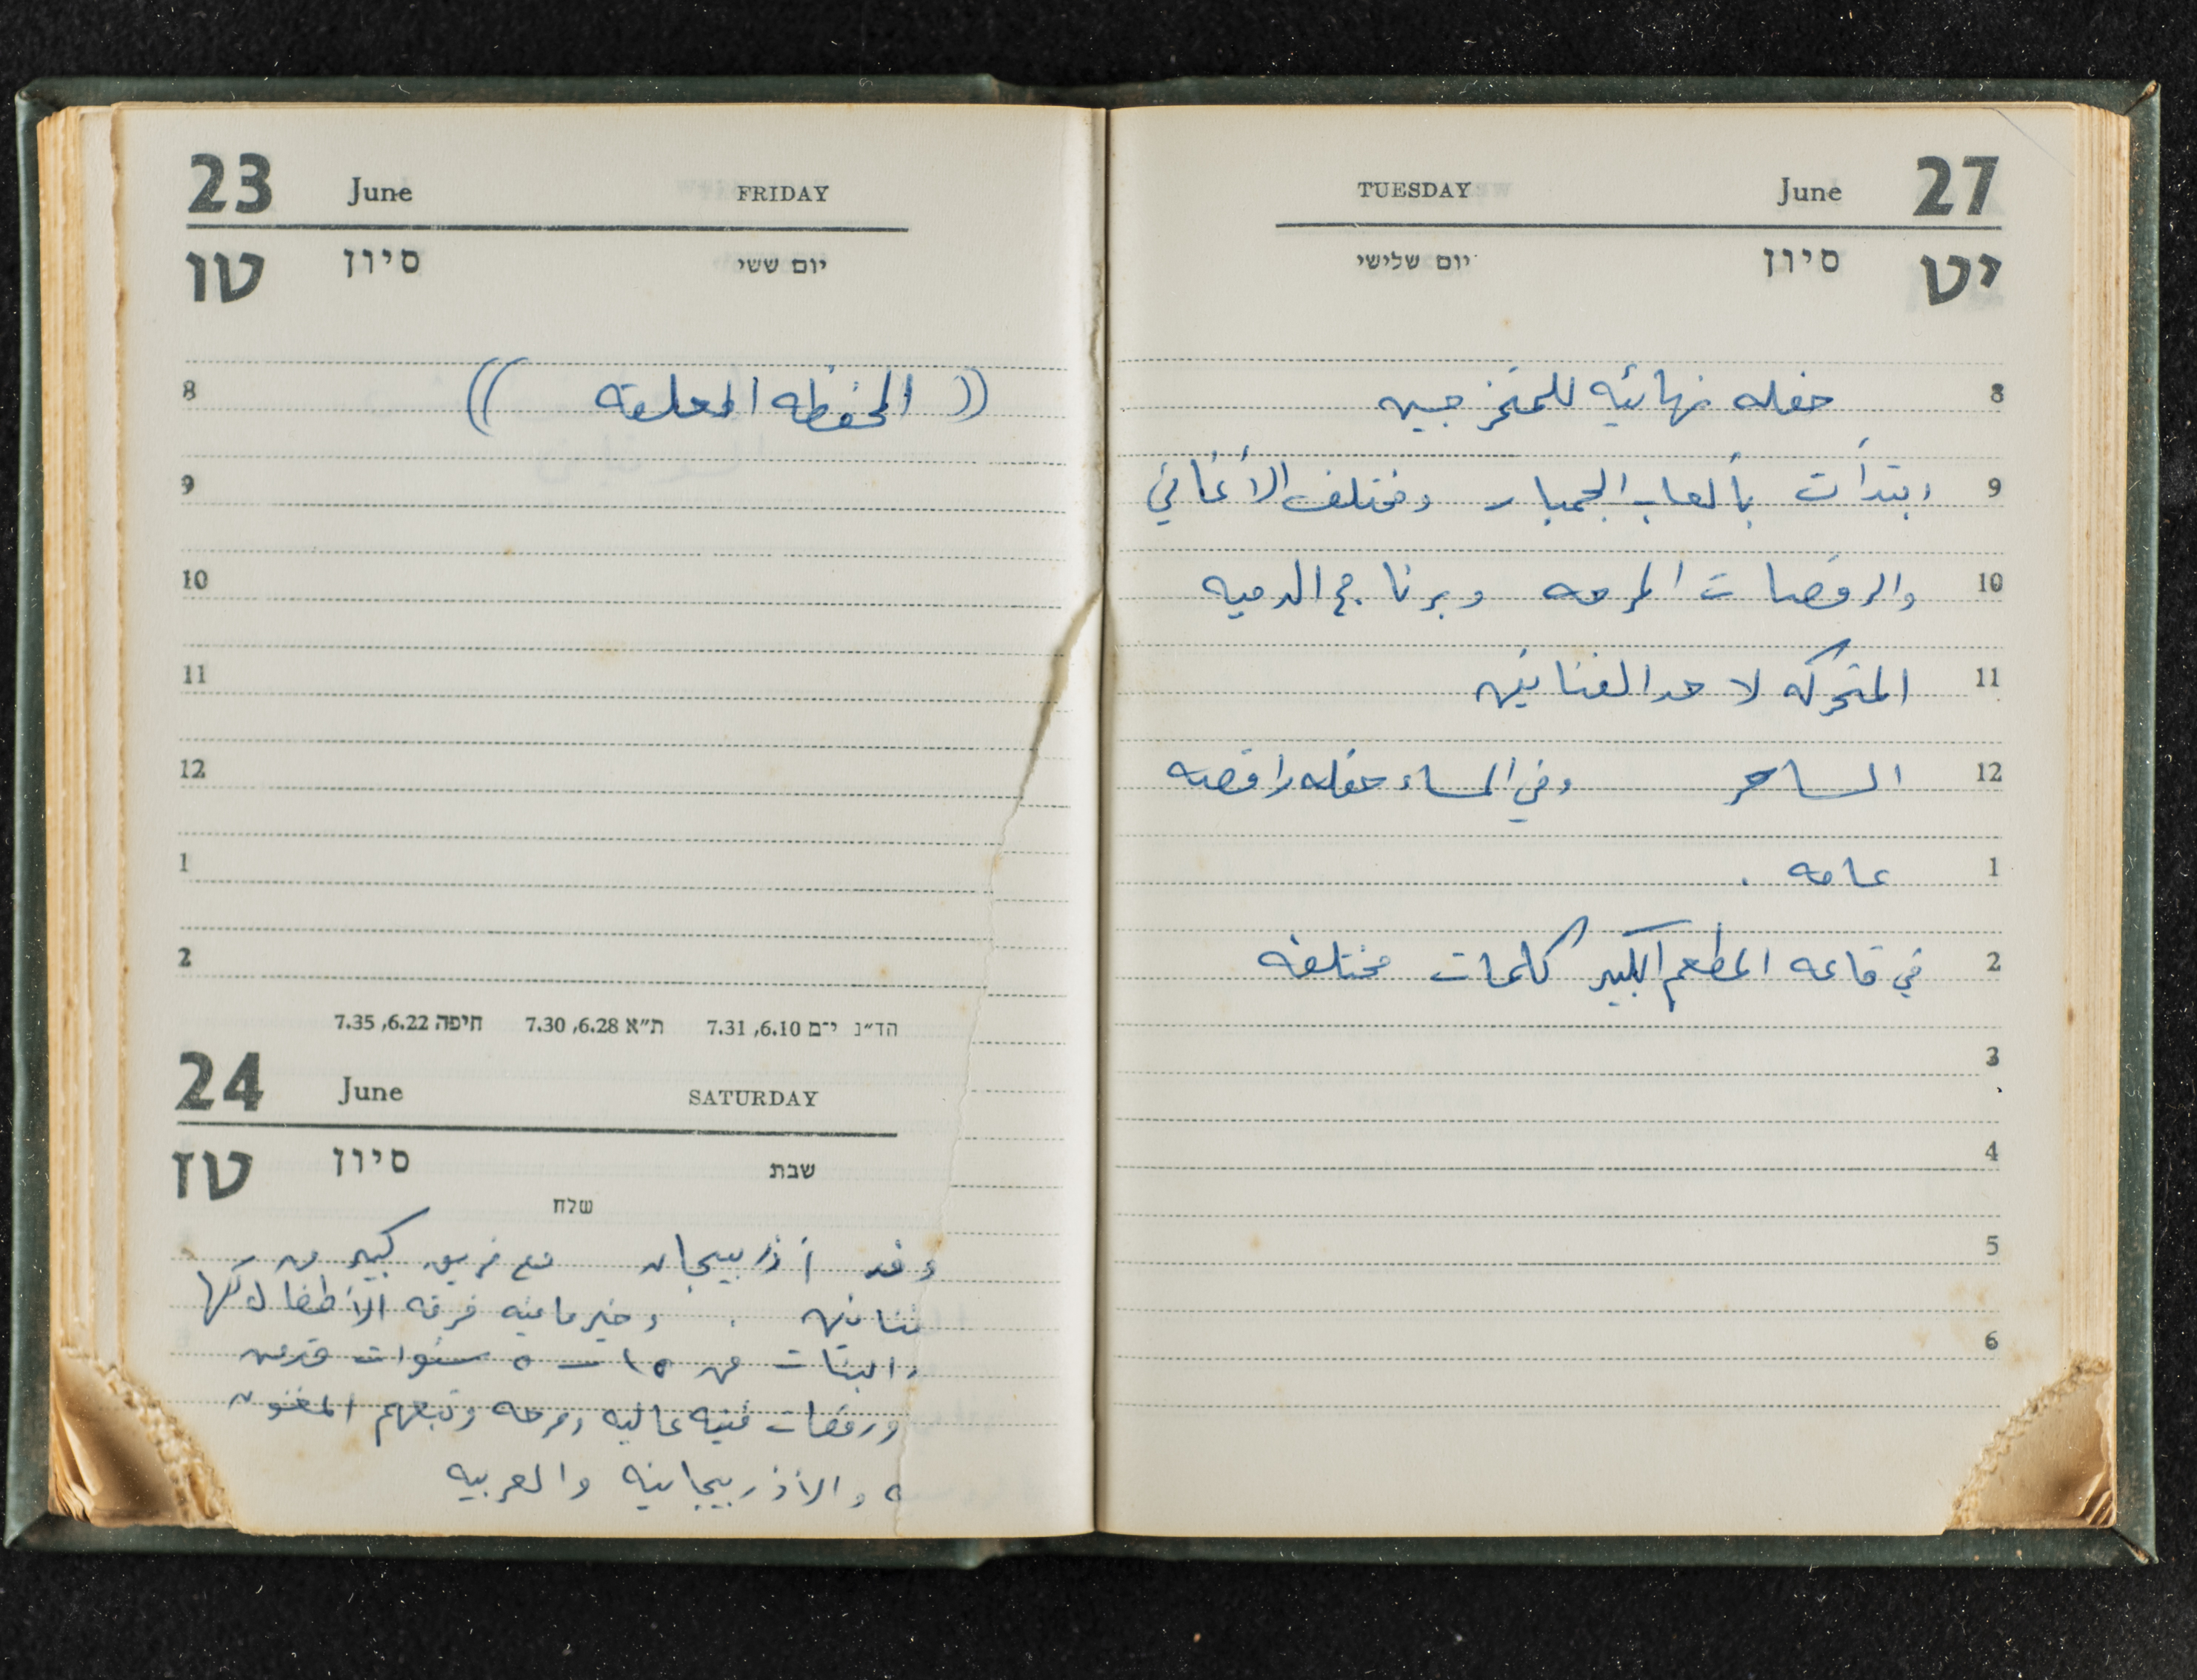 23 June FRIDAY
טו סיון יום ששי
8 (( المحفظه المعلقه ))
9
10
11
12
1
2
הד״נ י־ם 6.10, 7.31 ת״א 6.28, 7.30 חיפה 6.22, 7.35
24 June SATURDAY
טז סיון שבת
שלח
وفد اذربيجان مع فريق كبير من
فنانين . وخير ما فيه فرقه الأطفال كلها
والبنات من ١٥ – ٥ سنوات
ورقصات فنيه عاليه ومرحه وتبعهم المغنون
ه والاذربيجانيه والعربيه
TUESDAY June 27
יום שלישי סיון יט
8 حفله نهائيه للمتخرجين
9 ابتدأت بألعاب الجمباز ومختلف الأغاني
10 والرقصات المرحه وبرنامج الدميه
11 المتحركه لاحد الفنانين
12 الساحر وفي المساء حفله راقصه
1 عامه .
2 في قاعه المطعم الكبير كلمات مختلفه
3
4
5
6